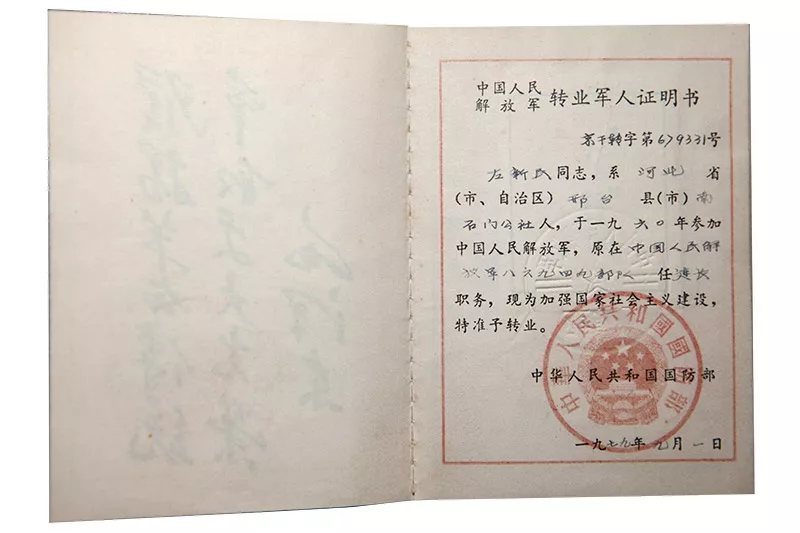 中国人民
解放军 转业军人证明书
京干转字第679331号
左新民同志，系 河北 省
(市、自治区) 邢台 县(市) 南
石门公社人，于一九六〇年参加
中国人民解放军，原在中国人民解
放军八六九四九部队 任连长
职务，现为加强国家社会主义建设，
特准予转业。
中华人民共和国国防部
中华人民共和國國防部
一九七九年九月一日